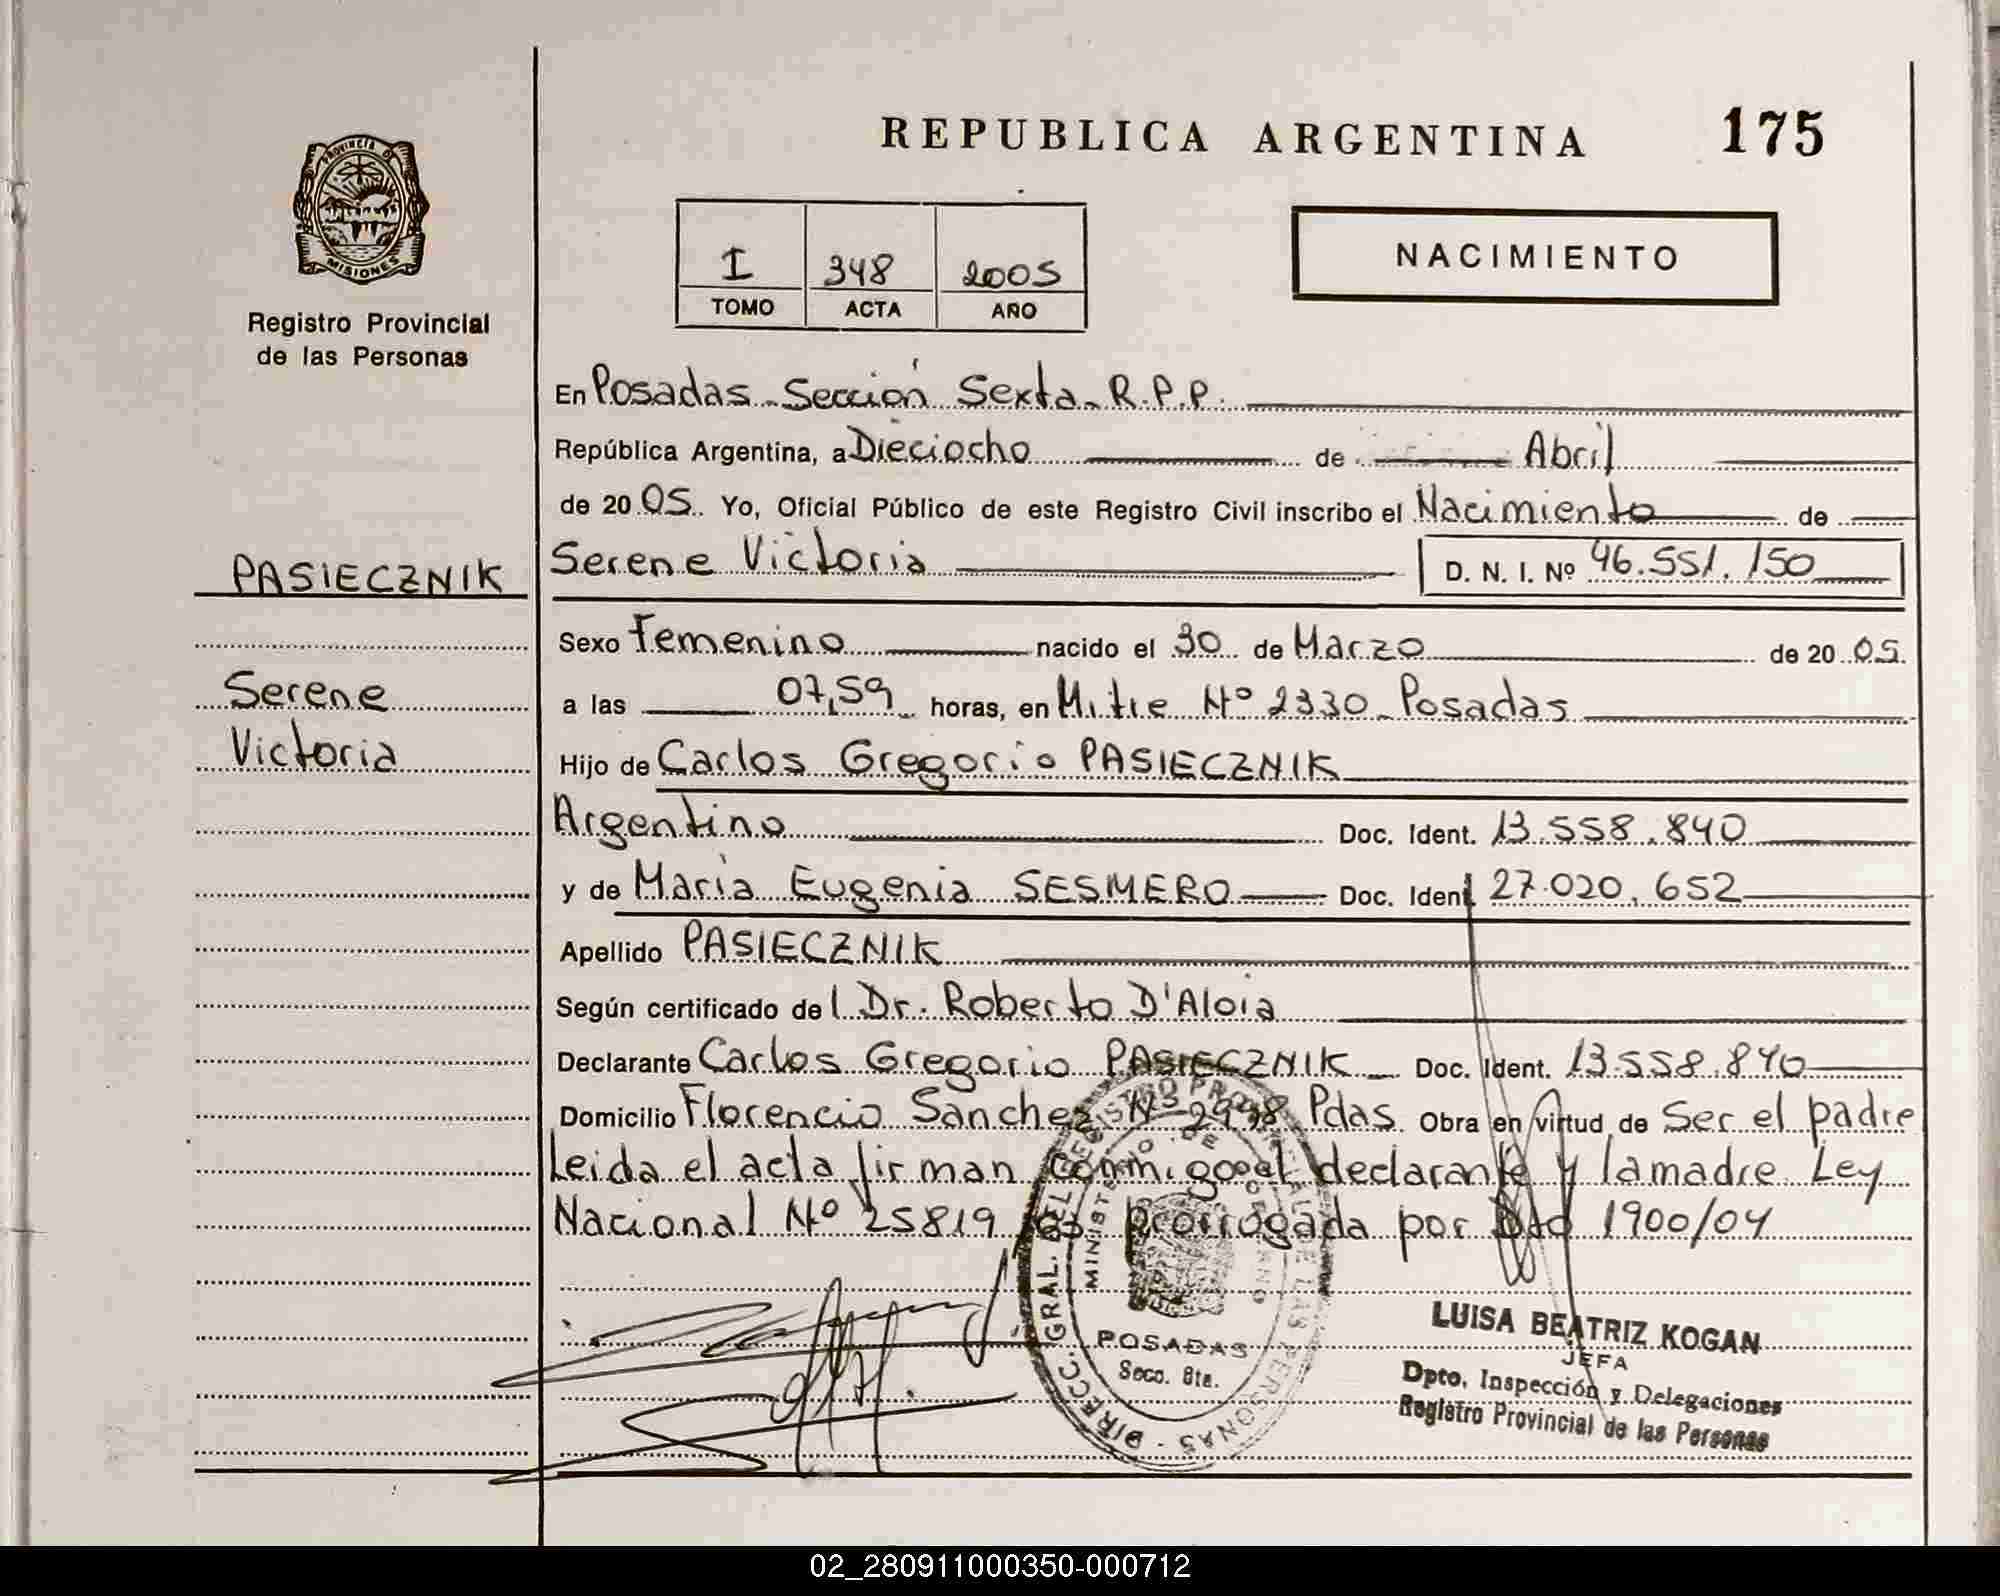 REPUBLICA ARGENTINA 175
PROVINCIA DE
MISIONES
Registro Provincial
de las Personas
I 348 2005
TOMO ACTA AÑO
NACIMIENTO
En Posadas - Sección Sexta - R.P.P.
República Argentina, a Dieciocho de Abril
de 20 05. Yo, Oficial Público de este Registro Civil inscribo el Nacimiento de
PASIECZNIK
Serene Victoria D. N. I. Nº 46.551.150
Sexo Femenino nacido el 30 de Marzo de 20 05.
Serene
a las 07,59 horas, en Mitre Nº 2330 - Posadas
Victoria
Hijo de Carlos Gregorio PASIECZNIK
Argentino Doc. Ident. 13.558.840
y de Maria Eugenia SESMERO Doc. Ident. 27.020.652
Apellido PASIECZNIK
Según certificado de l Dr. Roberto D'Aloia
Declarante Carlos Gregorio PASIECZNIK Doc. Ident. 13.558.840
Domicilio Florencio Sanchez Pdas. Obra en virtud de Ser el padre
Leida el acta firman conmigo el declarante y la madre Ley
Nacional Nº 25819 prorrogada por Dto 1900/04
DIRECC. GRAL. DEL REGISTRO PROVINCIAL DE LAS PERSONAS
MINISTERIO DE GOBIERNO
POSADAS
Secc. 6ta.
LUISA BEATRIZ KOGAN
JEFA
Dpto. Inspección y Delegaciones
Registro Provincial de las Personas
02_280911000350-000712